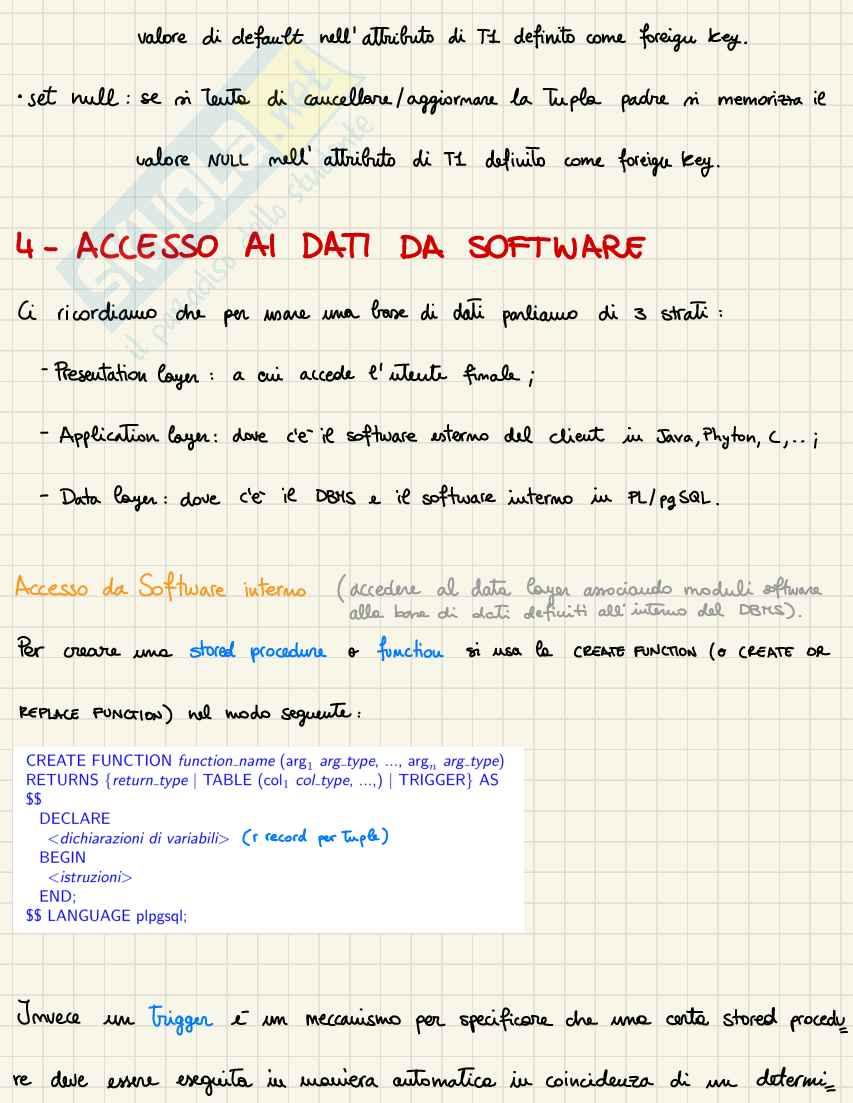 valore di default nell'attributo di T1 definito come foreign key.
• set null: se si tenta di cancellare/aggiornare la tupla padre si memorizza il
valore NULL nell'attributo di T1 definito come foreign key.
SKUOLA.net
il paradiso dello studente
4 - ACCESSO AI DATI DA SOFTWARE
Ci ricordiamo che per usare una base di dati parliamo di 3 strati:
- Presentation layer: a cui accede l'utente finale;
- Application layer: dove c'è il software esterno del client in Java, Phyton, C,..;
- Data layer: dove c'è il DBMS e il software interno in PL/pgSQL.
Accesso da Software interno (accedere al data layer associando moduli software
alla base di dati definiti all'interno del DBMS).
Per creare una stored procedure o function si usa la CREATE FUNCTION (o CREATE OR
REPLACE FUNCTION) nel modo seguente:
CREATE FUNCTION function_name (arg1 arg_type, ..., argn arg_type)
RETURNS {return_type | TABLE (col1 col_type, ...,) | TRIGGER} AS
$$
DECLARE
<dichiarazioni di variabili> (r record per tuple)
BEGIN
<istruzioni>
END;
$$ LANGUAGE plpgsql;
Invece un trigger è un meccanismo per specificare che una certa stored procedu=
re deve essere eseguita in maniera automatica in coincidenza di un determi=